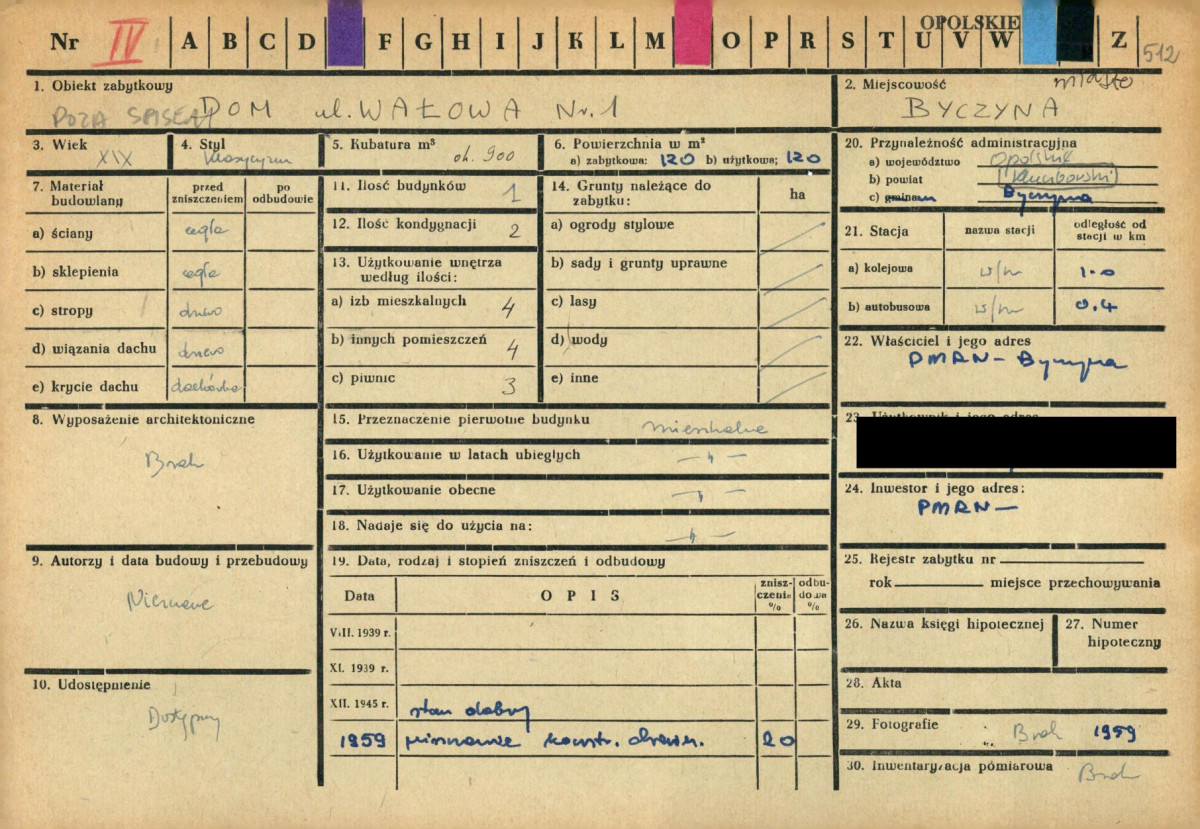 Nr IV A B C D F G H I J K L M O P R S T U V W Z
OPOLSKIE
512
1. Obiekt zabytkowy
POZA SPISEM DOM ul. WAŁOWA Nr. 1
2. Miejscowość miasto
BYCZYNA
3. Wiek XIX
4. Styl klasycyzm
5. Kubatura m³ ok. 900
6. Powierzchnia w m²
a) zabytkowa: 120 b) użytkowa; 120
20. Przynależność administracyjna
a) województwo opolskie
b) powiat kluczborski
c) gmina Byczyna
7. Materiał budowlany
przed zniszczeniem
po odbudowie
a) ściany cegła
b) sklepienia cegła
c) stropy drewo
d) wiązania dachu drewo
e) krycie dachu dachówka
11. Ilość budynków 1
12. Ilość kondygnacji 2
13. Użytkowanie wnętrza według ilości:
a) izb mieszkalnych 4
b) innych pomieszczeń 4
c) piwnic 3
14. Grunty należące do zabytku:
ha
a) ogrody stylowe
b) sady i grunty uprawne
c) lasy
d) wody
e) inne
21. Stacja
nazwa stacji
odległość od stacji w km
a) kolejowa w/m 1.0
b) autobusowa w/m 0.4
22. Właściciel i jego adres
PMRN - Byczyna
8. Wyposażenie architektoniczne
Brak
15. Przeznaczenie pierwotne budynku mieszkalne
16. Użytkowanie w latach ubiegłych -"-
17. Użytkowanie obecne -"-
18. Nadaje się do użycia na: -"-
23. Użytkownik i jego adres
24. Inwestor i jego adres:
PMRN -
9. Autorzy i data budowy i przebudowy
Nieznane
19. Data, rodzaj i stopień zniszczeń i odbudowy
Data
OPIS
zniszczenia %
odbudowa %
VIII. 1939 r.
XI. 1939 r.
XII. 1945 r. stan dobry
1959 konstr. 20
25. Rejestr zabytku nr
rok miejsce przechowywania
26. Nazwa księgi hipotecznej
27. Numer hipoteczny
10. Udostępnienie
Dostępny
28. Akta
29. Fotografie Brak 1959
30. Inwentaryzacja pomiarowa Brak